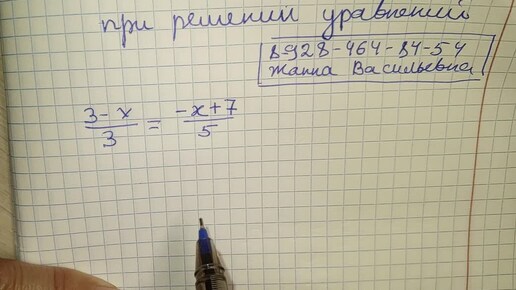 при решении уравнений
8-928-464-84-54
Жанна Васильевна
3-x/3 = -x+7/5